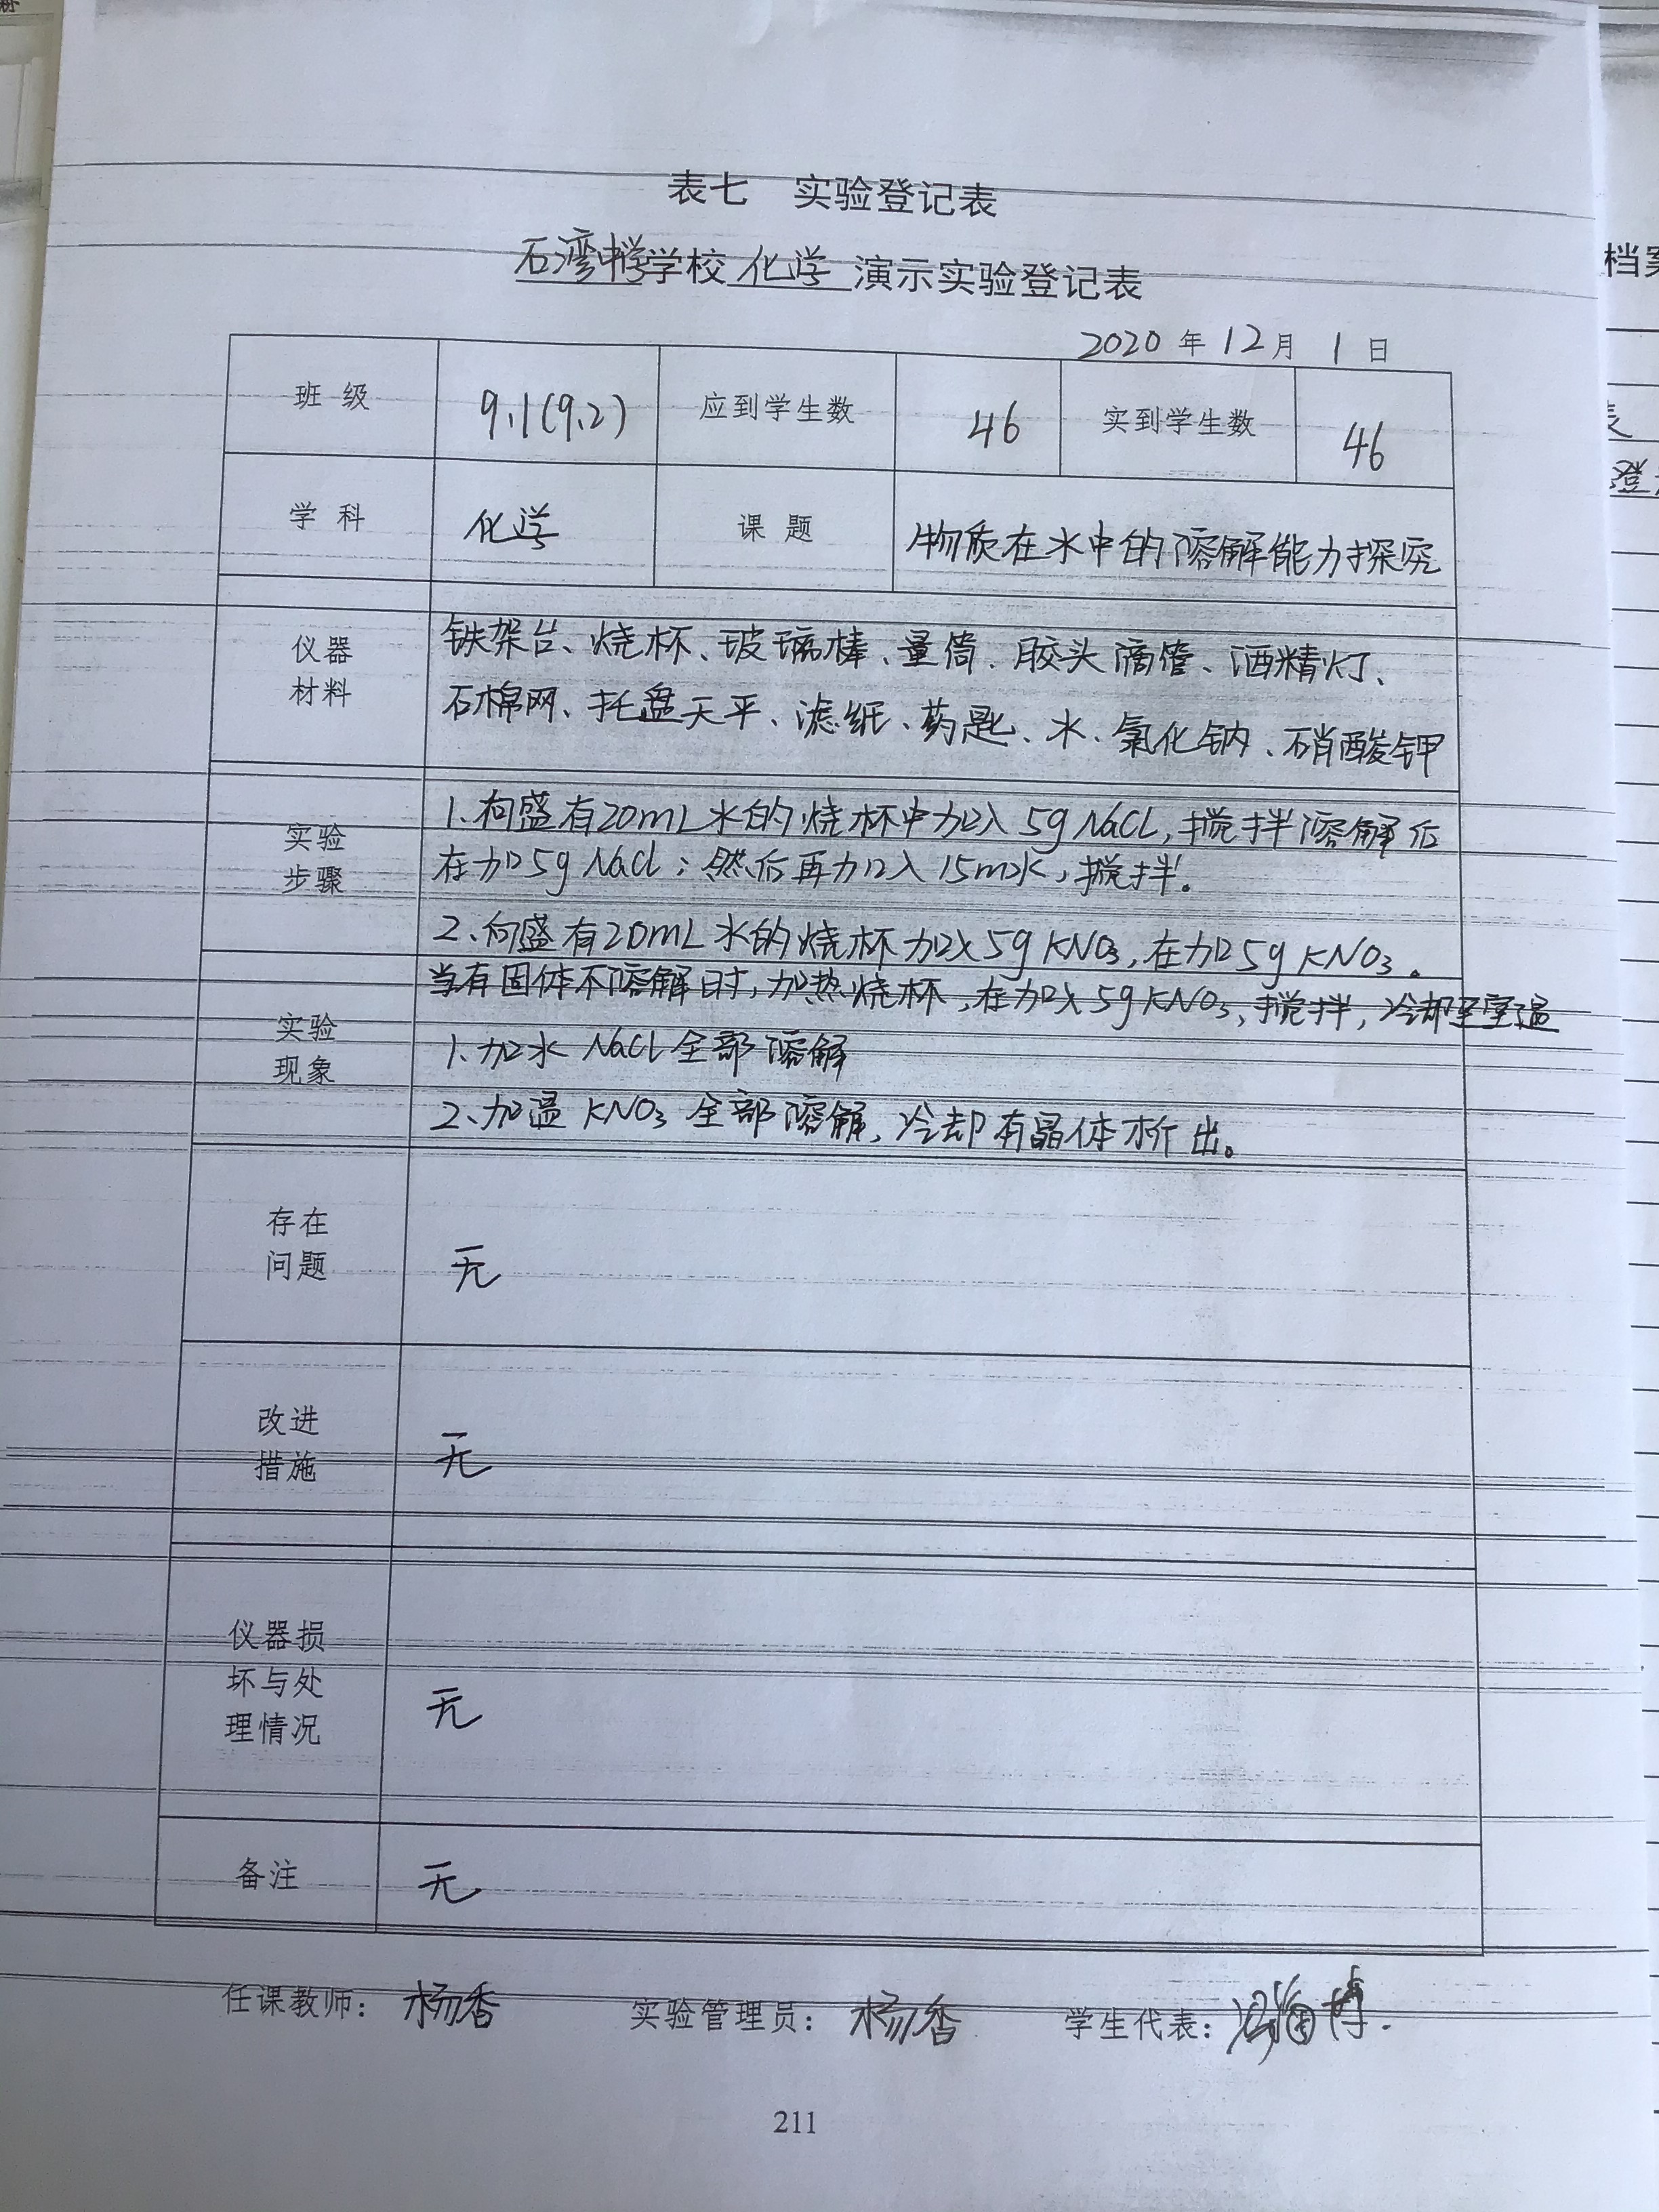 表七 实验登记表
石湾中学学校 化学 演示实验登记表
2020 年 12 月 1 日
班 级 9.1(9.2) 应到学生数 46 实到学生数 46
学 科 化学 课 题 物质在水中的溶解能力探究
仪器
材料
铁架台、烧杯、玻璃棒、量筒、胶头滴管、酒精灯、
石棉网、托盘天平、滤纸、药匙、水、氯化钠、硝酸钾
实验
步骤
1.向盛有20mL水的烧杯中加入5g NaCl,搅拌溶解后
在加5g NaCl;然后再加入15m水,搅拌。
2.向盛有20mL水的烧杯加入5g KNO3,在加5g KNO3。
当有固体不溶解时,加热烧杯,在加入5g KNO3,搅拌,冷却至室温
实验
现象
1.加水 NaCl全部溶解
2.加温 KNO3 全部溶解,冷却有晶体析出。
存在
问题
无
改进
措施
无
仪器损
坏与处
理情况
无
备注 无
任课教师: 杨香 实验管理员: 杨香 学生代表:
211
档案
表
登